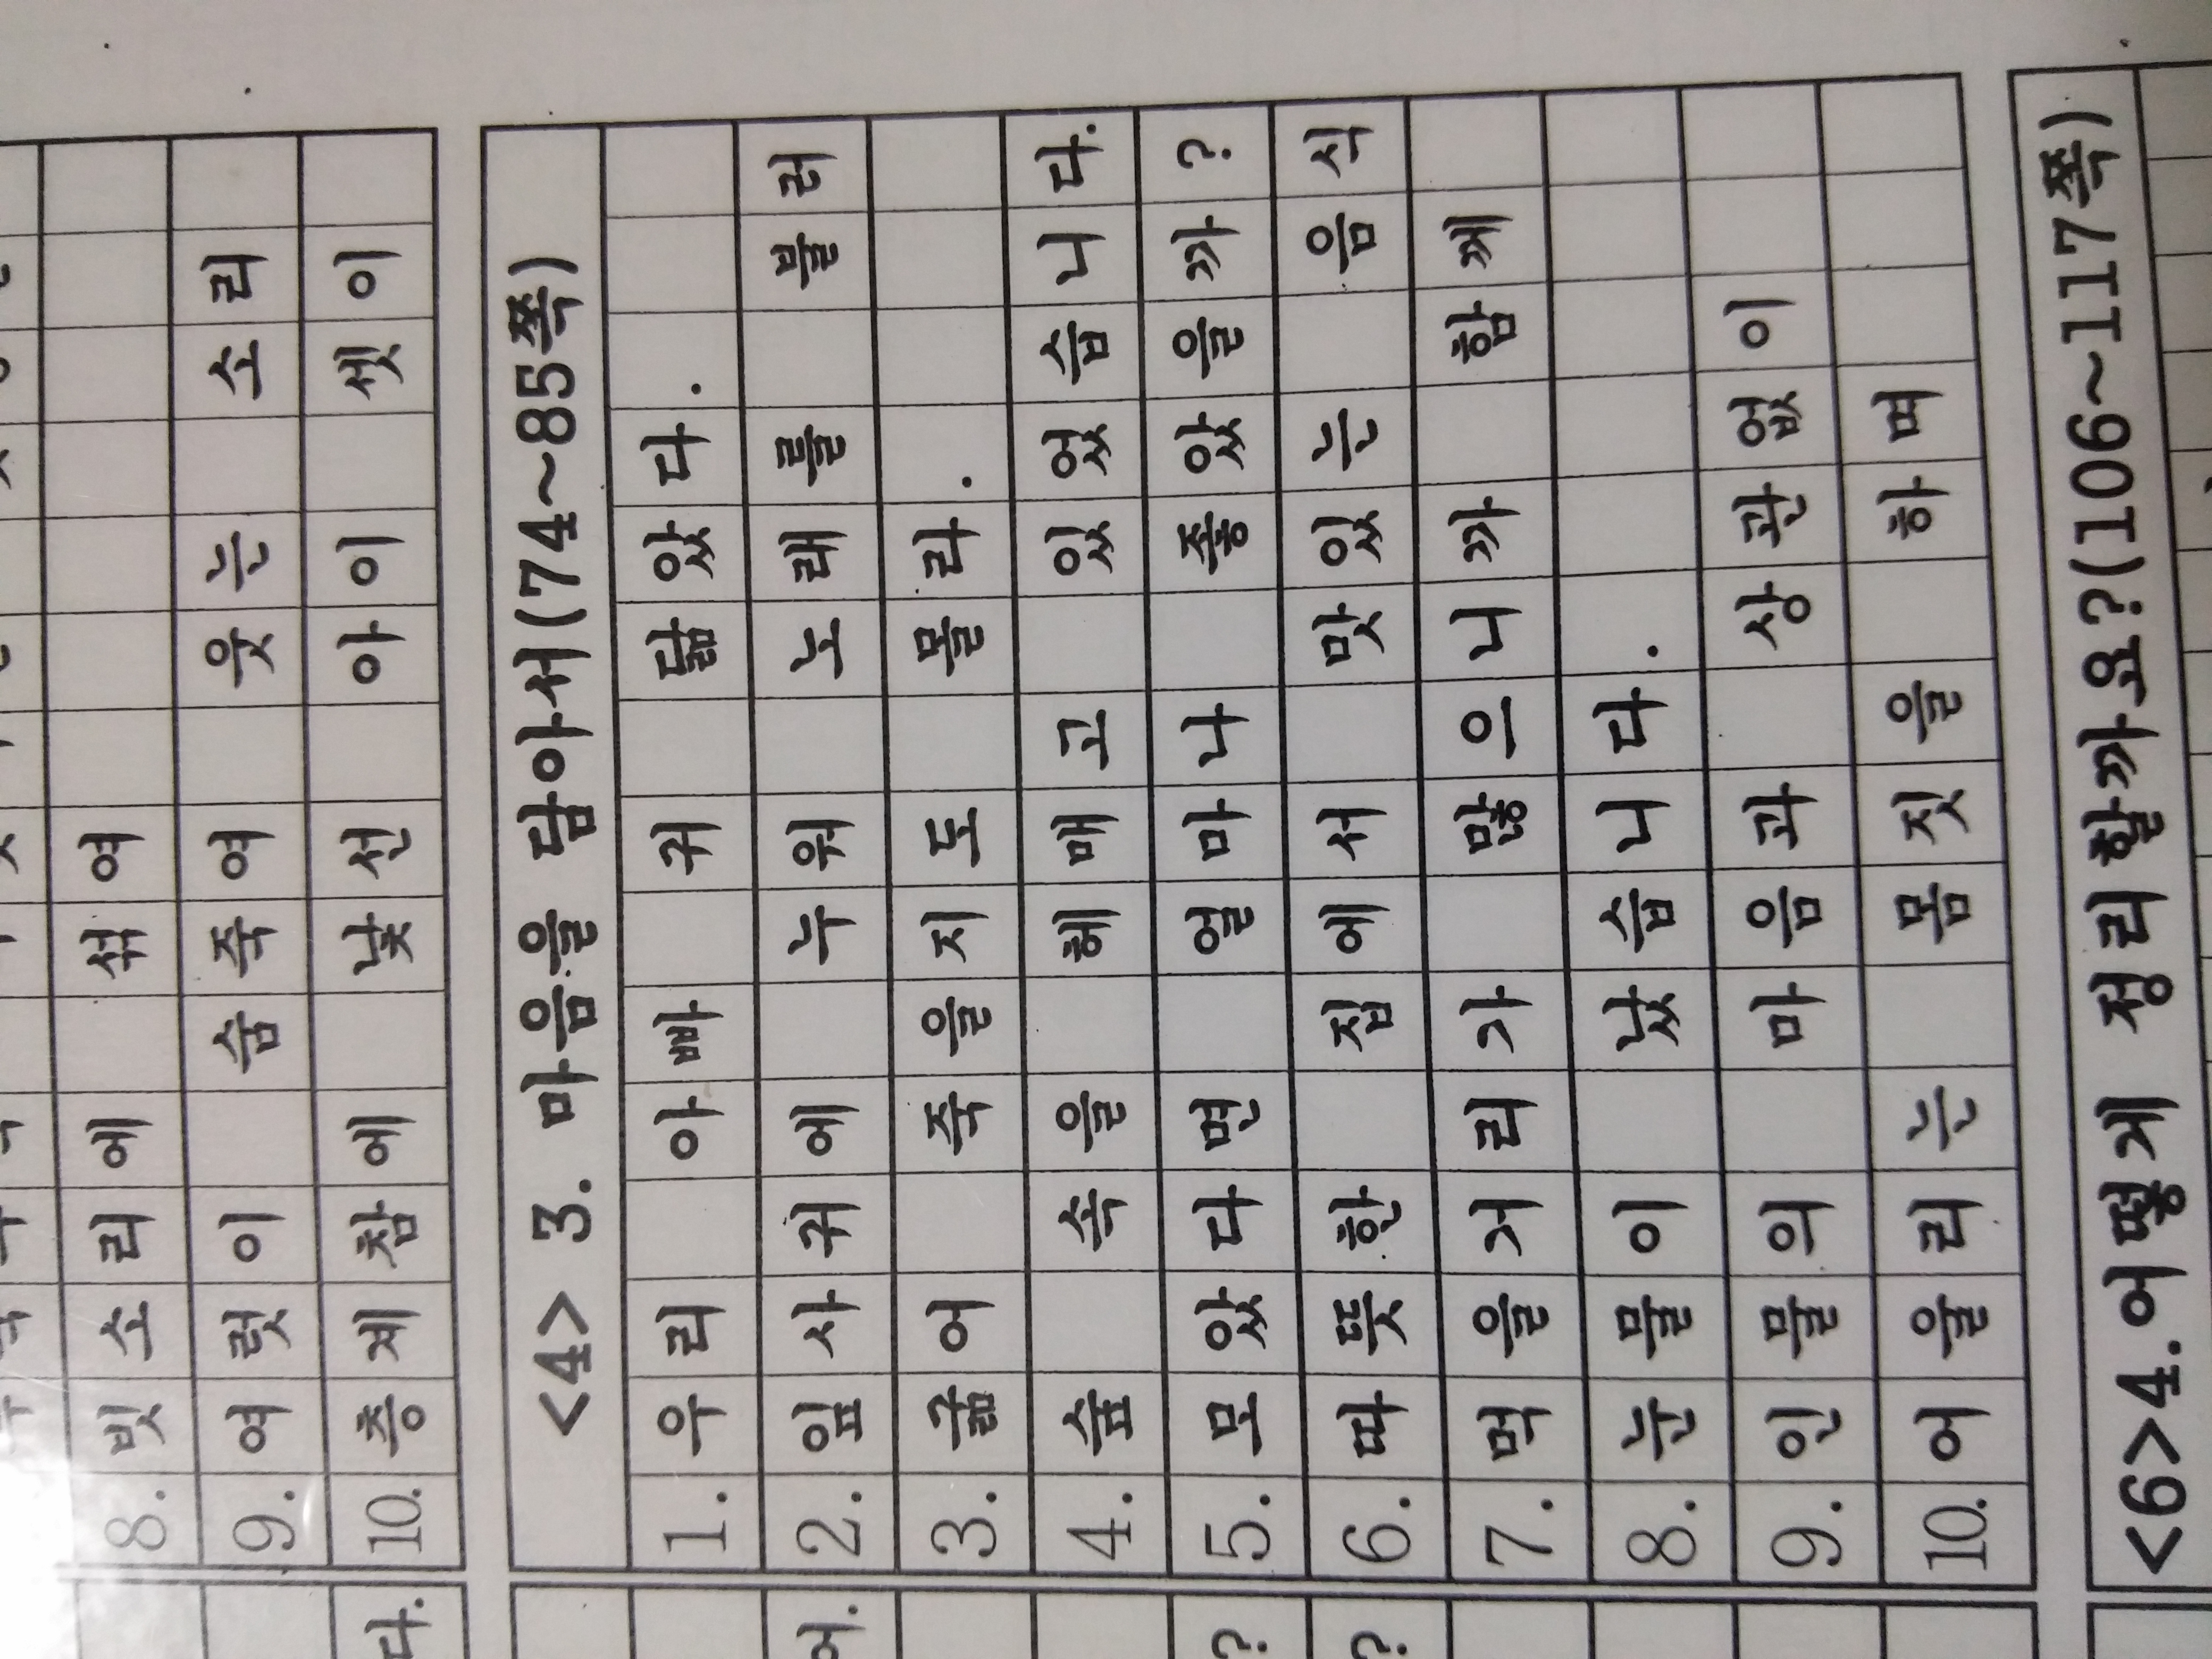 8. 빗소리에 섞여
9. 여럿이 숨죽여 웃는 소리
10. 층계참에 낯선 아이 셋이
다.
<4> 3. 마음을 담아서(74~85쪽)
1. 우리 아빠 귀 닮았다.
2. 잎사귀에 누워 노래를 불러
어.
3. 굶어 죽을지도 몰라.
4. 숲 속을 헤매고 있었습니다.
5. 모았다면 얼마나 좋았을까?
?
6. 따뜻한 집에서 맛있는 음식
?
7. 먹을거리가 많으니까 함께
8. 눈물이 났습니다.
9. 인물의 마음과 상관없이
10. 어울리는 몸짓을 하며
<6>4.어떻게 정리할까요?(106~117쪽)